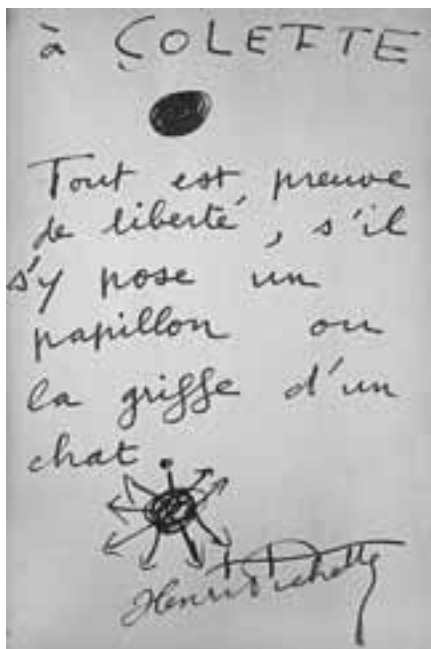 à COLETTE
Tout est preuve
de liberté, s'il
s'y pose un
papillon ou
la griffe d'un
chat.
Henri Pichette